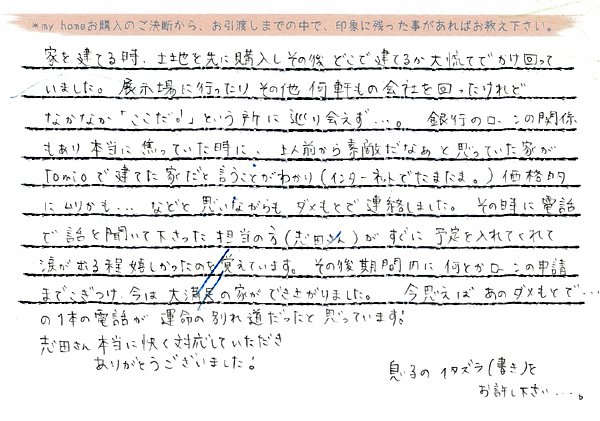 *my homeお購入のご決断から、お引渡しまでの中で、印象に残った事があればお教え下さい。
家を建てる時、土地を先に購入しその後どこで建てるか大慌てでかけ回って
いました。展示場に行ったりその他何軒もの会社を回ったけれど
なかなか「ここだ!」という所に巡り会えず…。銀行のローンの関係
もあり本当に焦っていた時に、以前から素敵だなぁと思っていた家が
Tomioで建てた家だと言うことがわかり(インターネットでたまたま。)価格的
にムリかも…などと思いながらもダメもとで連絡しました。その時に電話
で話を聞いて下さった担当の方(志田さん)がすぐに予定を入れてくれて
涙が出る程嬉しかったのを覚えています。その後期間内に何とかローンの申請
までこぎつけ、今は大満足の家ができ上がりました。今思えばあのダメもとで…
の1本の電話が運命の別れ道だったと思っています!
志田さん本当に快く対応していただき
ありがとうございました!
息子のイタズラ(書き)を
お許し下さい…。